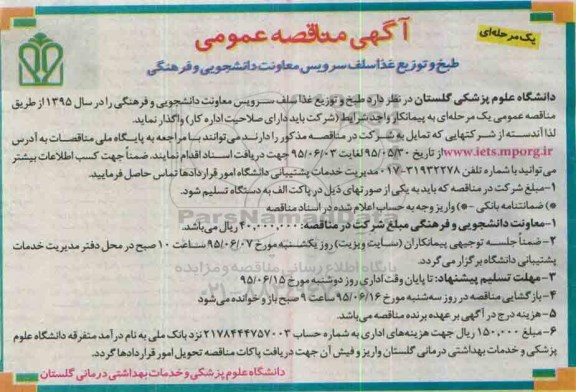 آگهی مناقصه عمومی
یک مرحله‌ای
طبخ و توزیع غذا سلف سرویس معاونت دانشجویی و فرهنگی
دانشگاه علوم پزشکی گلستان در نظر دارد طبخ و توزیع غذا سلف سرویس معاونت دانشجویی و فرهنگی را در سال ۱۳۹۵ از طریق
مناقصه عمومی یک مرحله‌ای به پیمانکار واجد شرایط (شرکت باید دارای صلاحیت اداره کار) واگذار نماید.
لذا آندسته از شرکتهایی که تمایل به شرکت در مناقصه مذکور را دارند می‌توانند با مراجعه به پایگاه ملی مناقصات به آدرس
www.iets.mporg.ir از تاریخ ۹۵/۰۵/۳۰ لغایت ۹۵/۰۶/۰۳ جهت دریافت اسناد اقدام نمایند. ضمناً جهت کسب اطلاعات بیشتر
می‌توانید با شماره تلفن ۳۱۹۳۲۲۷۸-۰۱۷ مدیریت خدمات پشتیبانی دانشگاه امور قراردادها تماس حاصل فرمایید.
۱-مبلغ شرکت در مناقصه که باید به یکی از صورتهای ذیل در پاکت الف به دستگاه تسلیم شود.
*) ضمانتنامه بانکی - *) واریز وجه به حساب اعلام شده در اسناد مناقصه
۱-معاونت دانشجویی و فرهنگی مبلغ شرکت در مناقصه: ۴۰،۰۰۰،۰۰۰ ریال می‌باشد.
۲-ضمناً جلسه توجیهی پیمانکاران (سایت ویزیت) روز یکشنبه مورخ ۹۵/۰۶/۰۷ ساعت ۱۰ صبح در محل دفتر مدیریت خدمات
پشتیبانی دانشگاه برگزار می‌گردد.
۳-مهلت تسلیم پیشنهاد: تا پایان وقت اداری روز دوشنبه مورخ ۹۵/۰۶/۱۵
۴-بازگشایی مناقصه در روز سه‌شنبه مورخ ۹۵/۰۶/۱۶ ساعت ۹ صبح باز و خوانده می‌شود
۵-هزینه درج در آگهی بر عهده برنده مناقصه می‌باشد.
۶-مبلغ ۱۵۰،۰۰۰ ریال جهت هزینه‌های اداری به شماره حساب ۲۱۷۸۴۴۴۷۵۷۰۰۳ نزد بانک ملی به نام درآمد متفرقه دانشگاه علوم
پزشکی و خدمات بهداشتی درمانی گلستان واریز و فیش آن جهت دریافت پاکات مناقصه تحویل امور قراردادها گردد.
دانشگاه علوم پزشکی و خدمات بهداشتی درمانی گلستان
ParsNamadData
پایگاه اطلاع رسانی مناقصه و مزایده